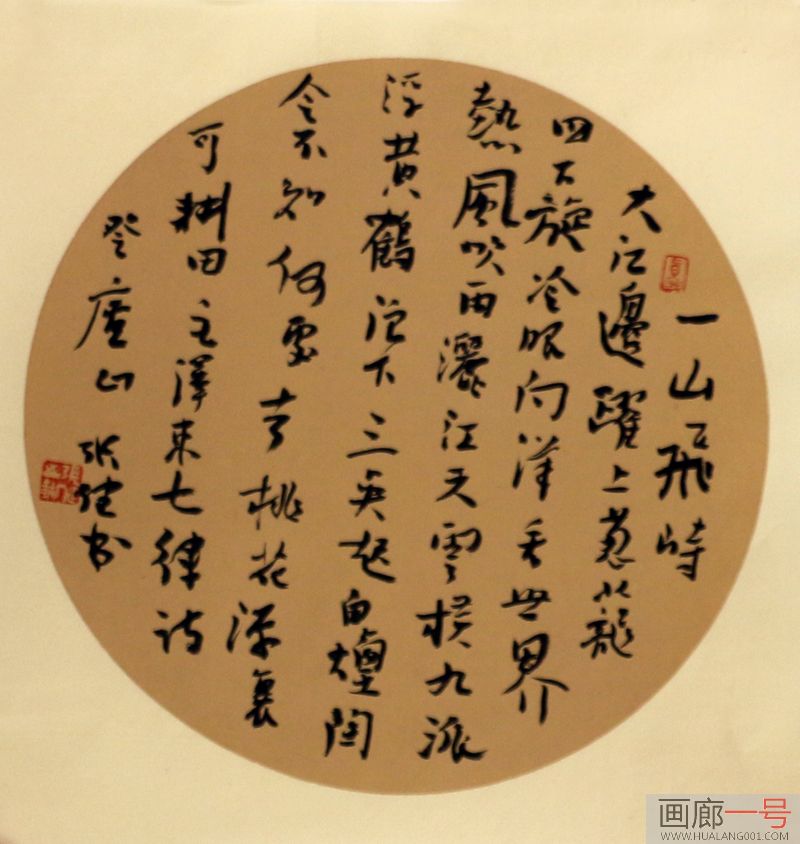 一山飛峙
大江邊躍上蔥蘢
四百旋冷眼向洋看世界
熱風吹雨灑江天雲横九派
浮黄鶴浪下三吴起白煙陶
令不知何處去桃花源裏
可耕田毛澤東七律詩
登廬山 张健书
画廊一号
WWW.HUALANG001.COM